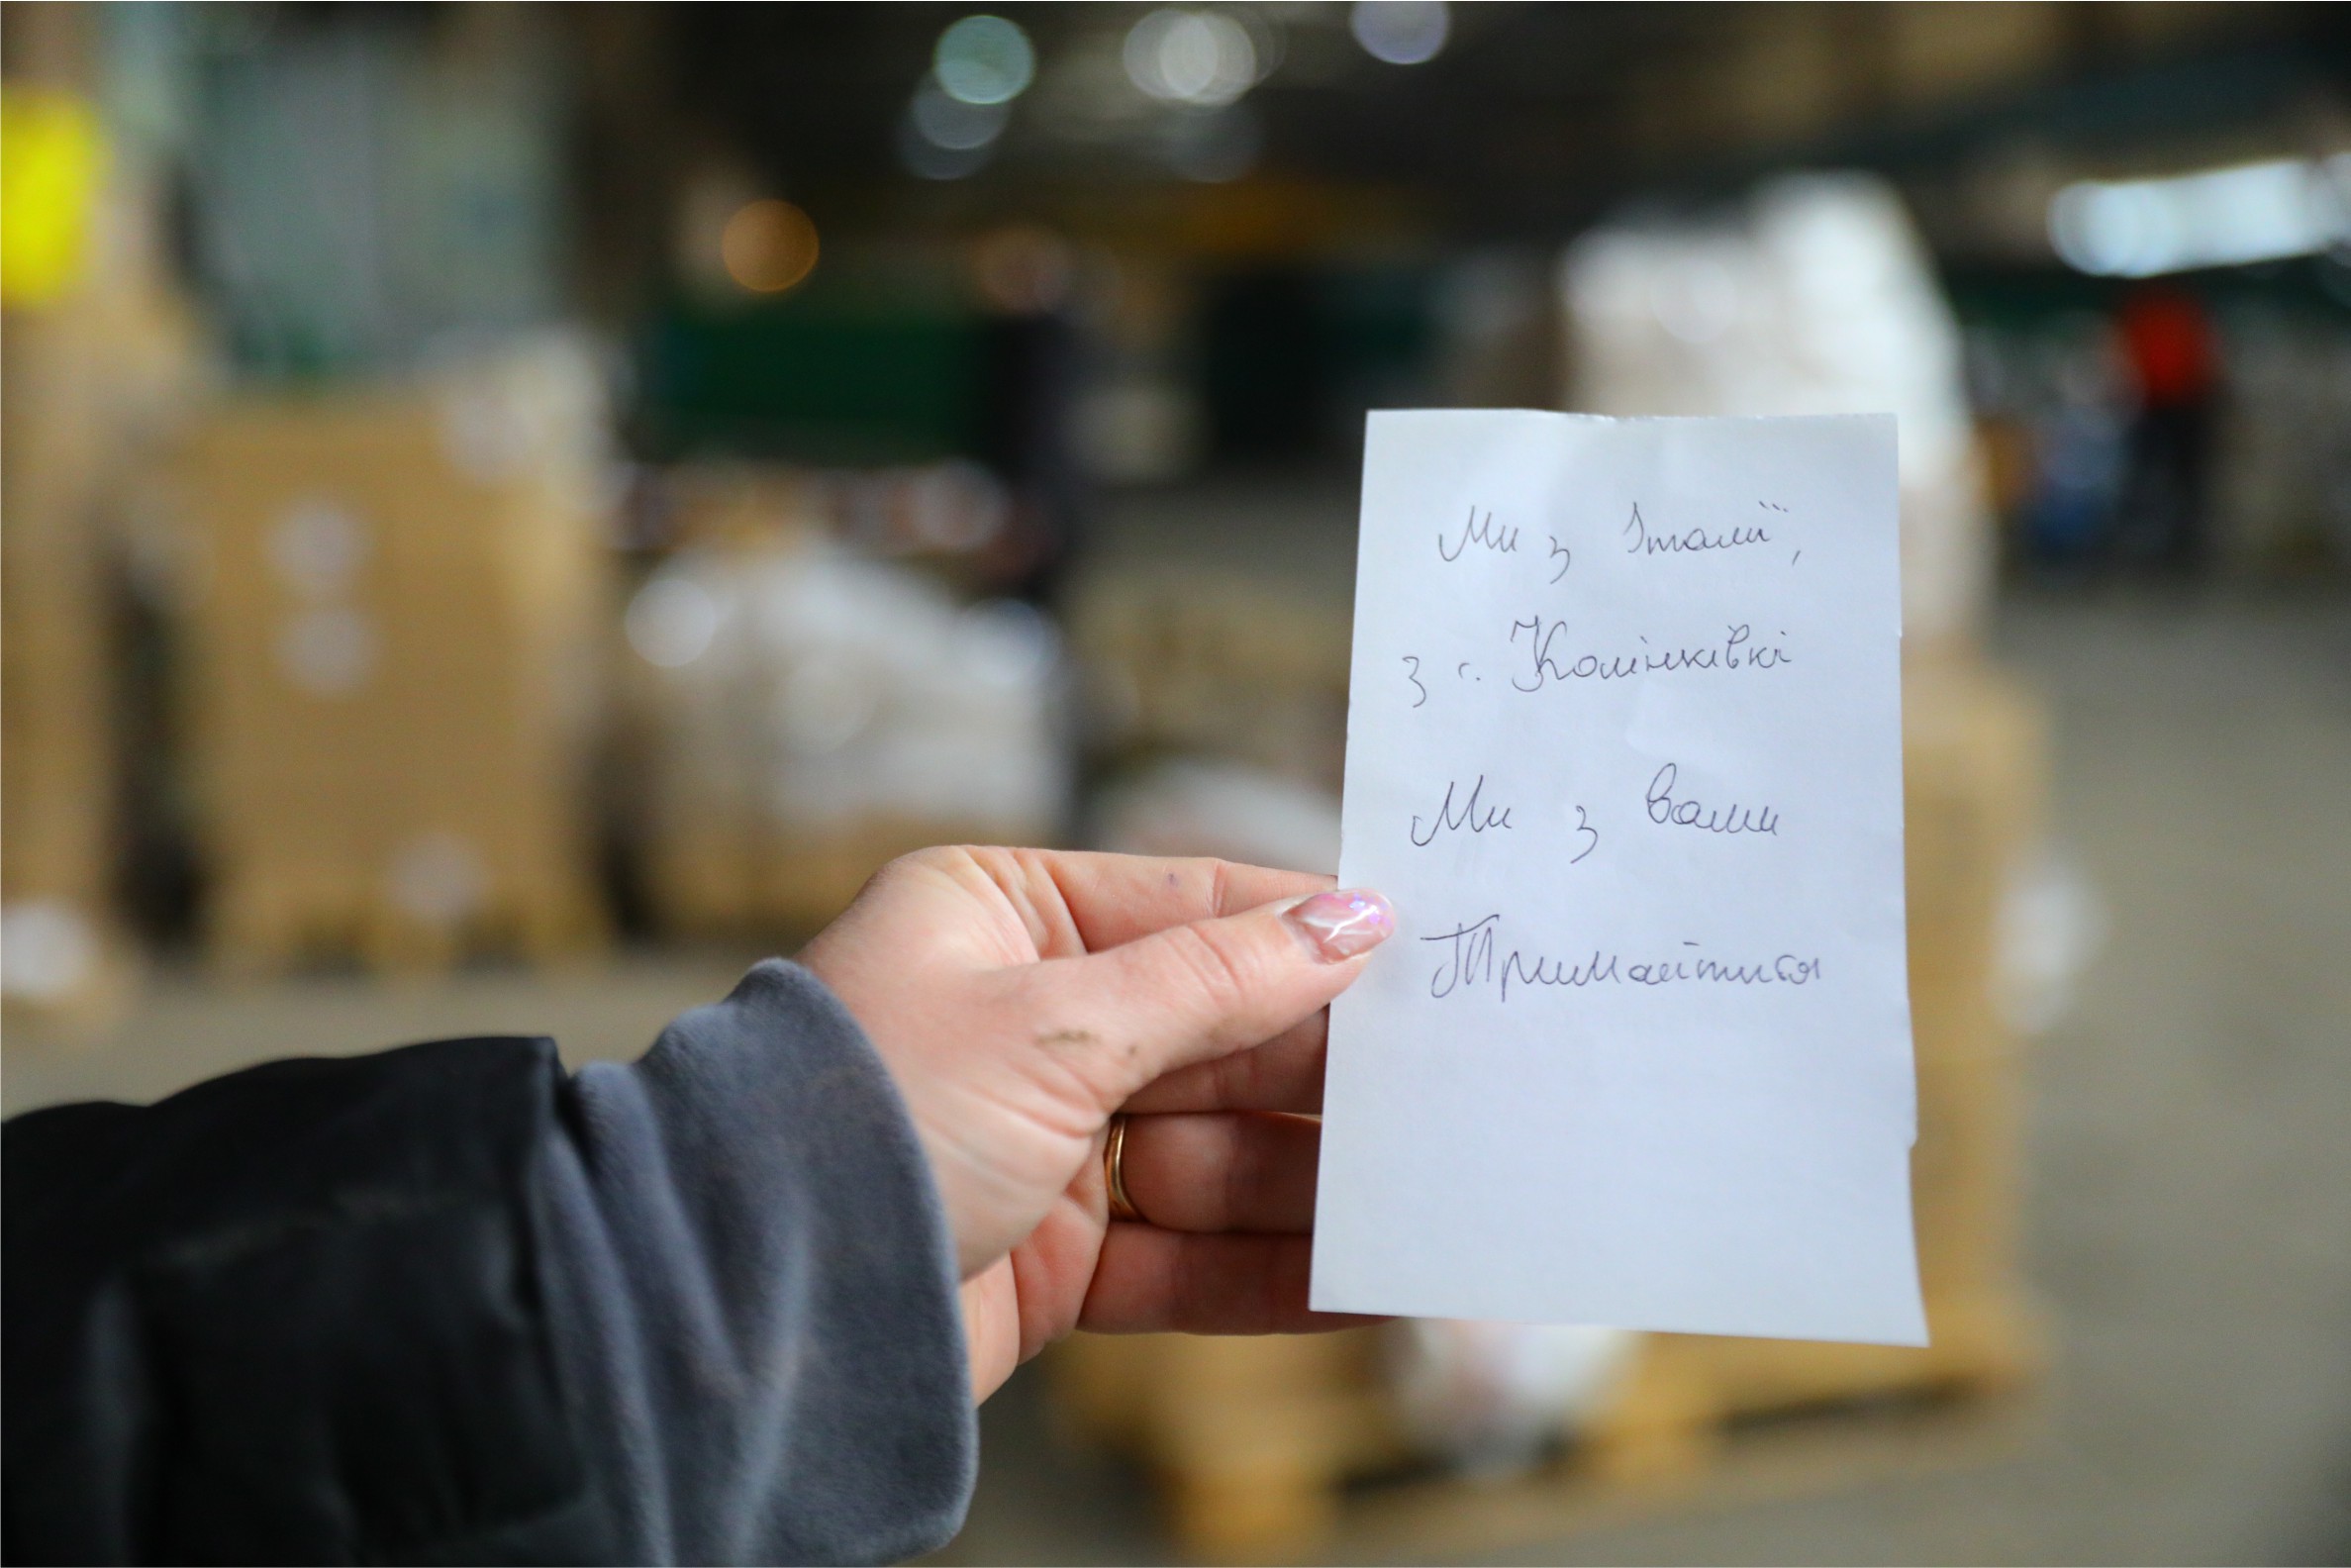 Ми з Італії,
з с. Колінківкі
Ми з вами
Тримайтися